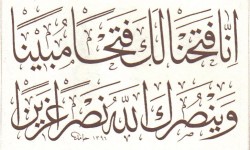 إنا فتحنا لك فتحا مبينا
وينصرك الله نصرا عزيزا